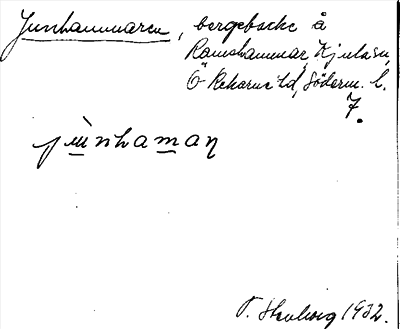 Junhammaren, bergebacke å
Ramshammar, Kjulaån,
Ö Rekarne hd, Söderm. l.
7.
jùnhaman
T. Stenberg 1932.